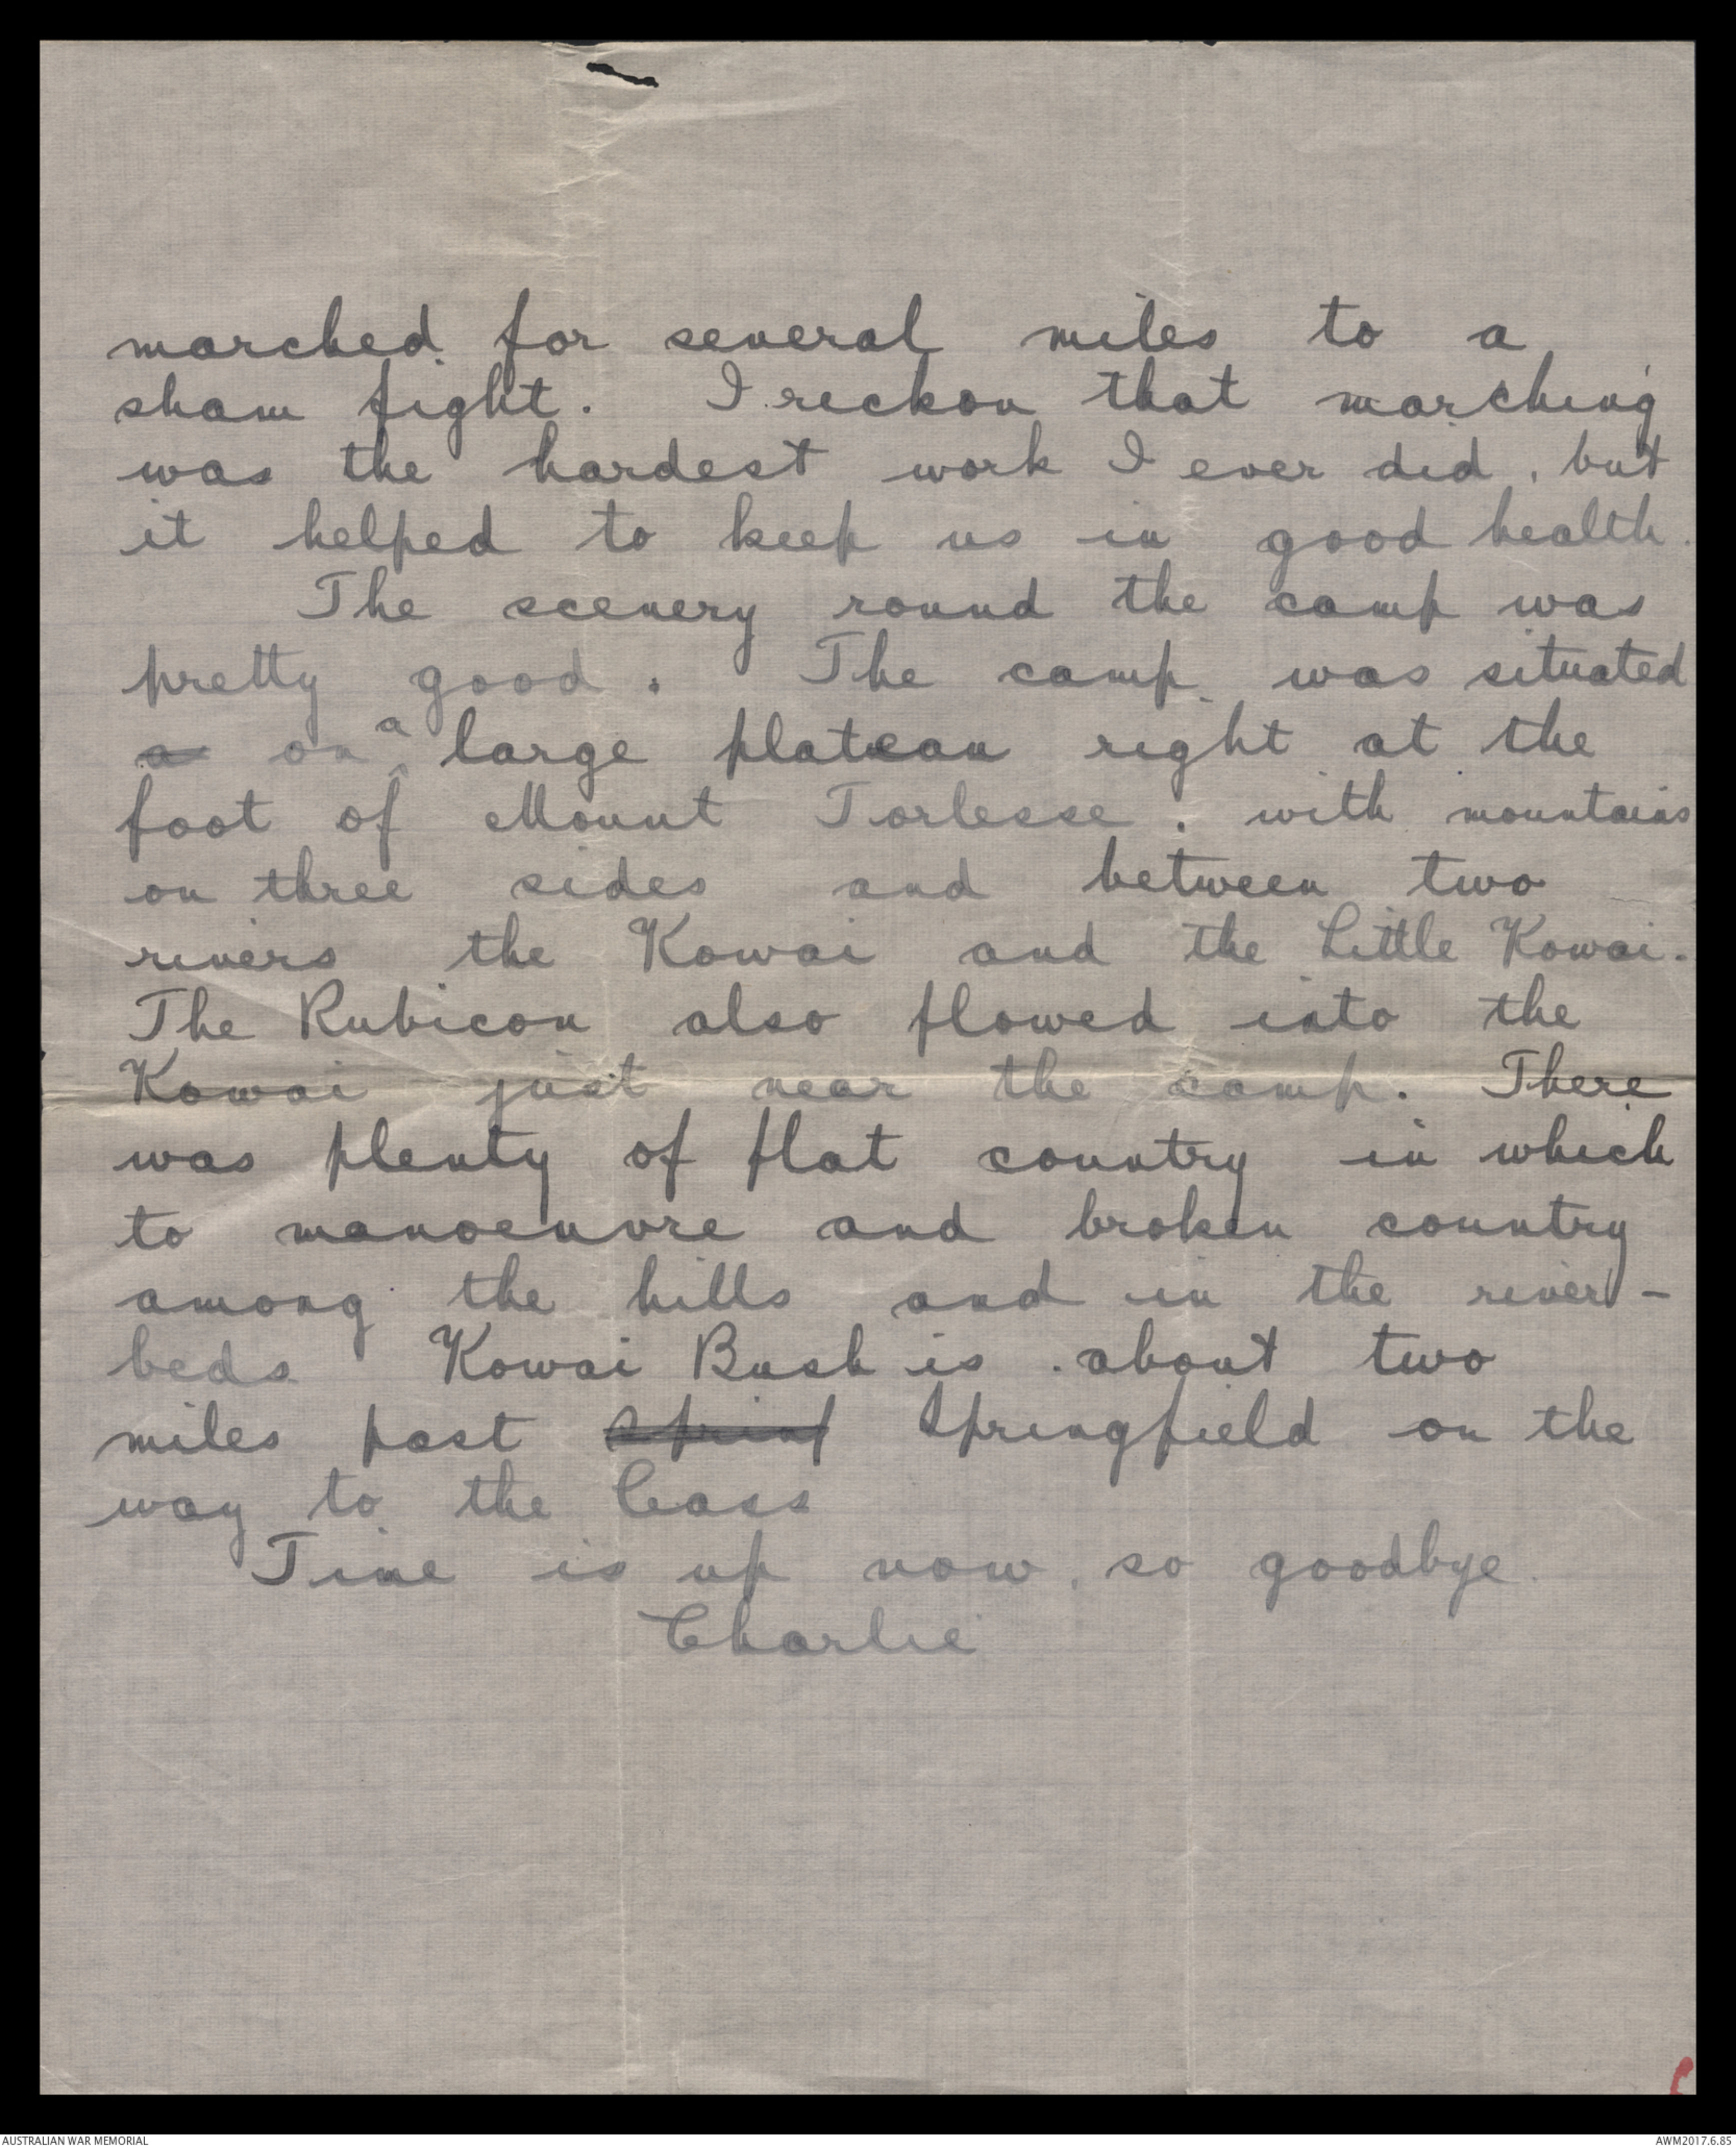 marched for several miles to a
sham fight. I reckon that marching
was the hardest work I ever did, but
it helped to keep us in good health.
The scenery round the camp was
pretty good. The camp was situated
a on a large plateau right at the
foot of Mount Torlesse, with mountains
on three sides and between two
rivers the Kowai and the Little Kowai.
The Rubicon also flowed into the
Kowai just near the camp. There
was plenty of flat country in which
to manoeuvre and broken country
among the hills and in the river-
beds Kowai Bush is about two
miles past Spring Springfield on the
way to the Cass
Time is up now, so goodbye.
Charlie
AUSTRALIAN WAR MEMORIAL
AWM2017.6.85